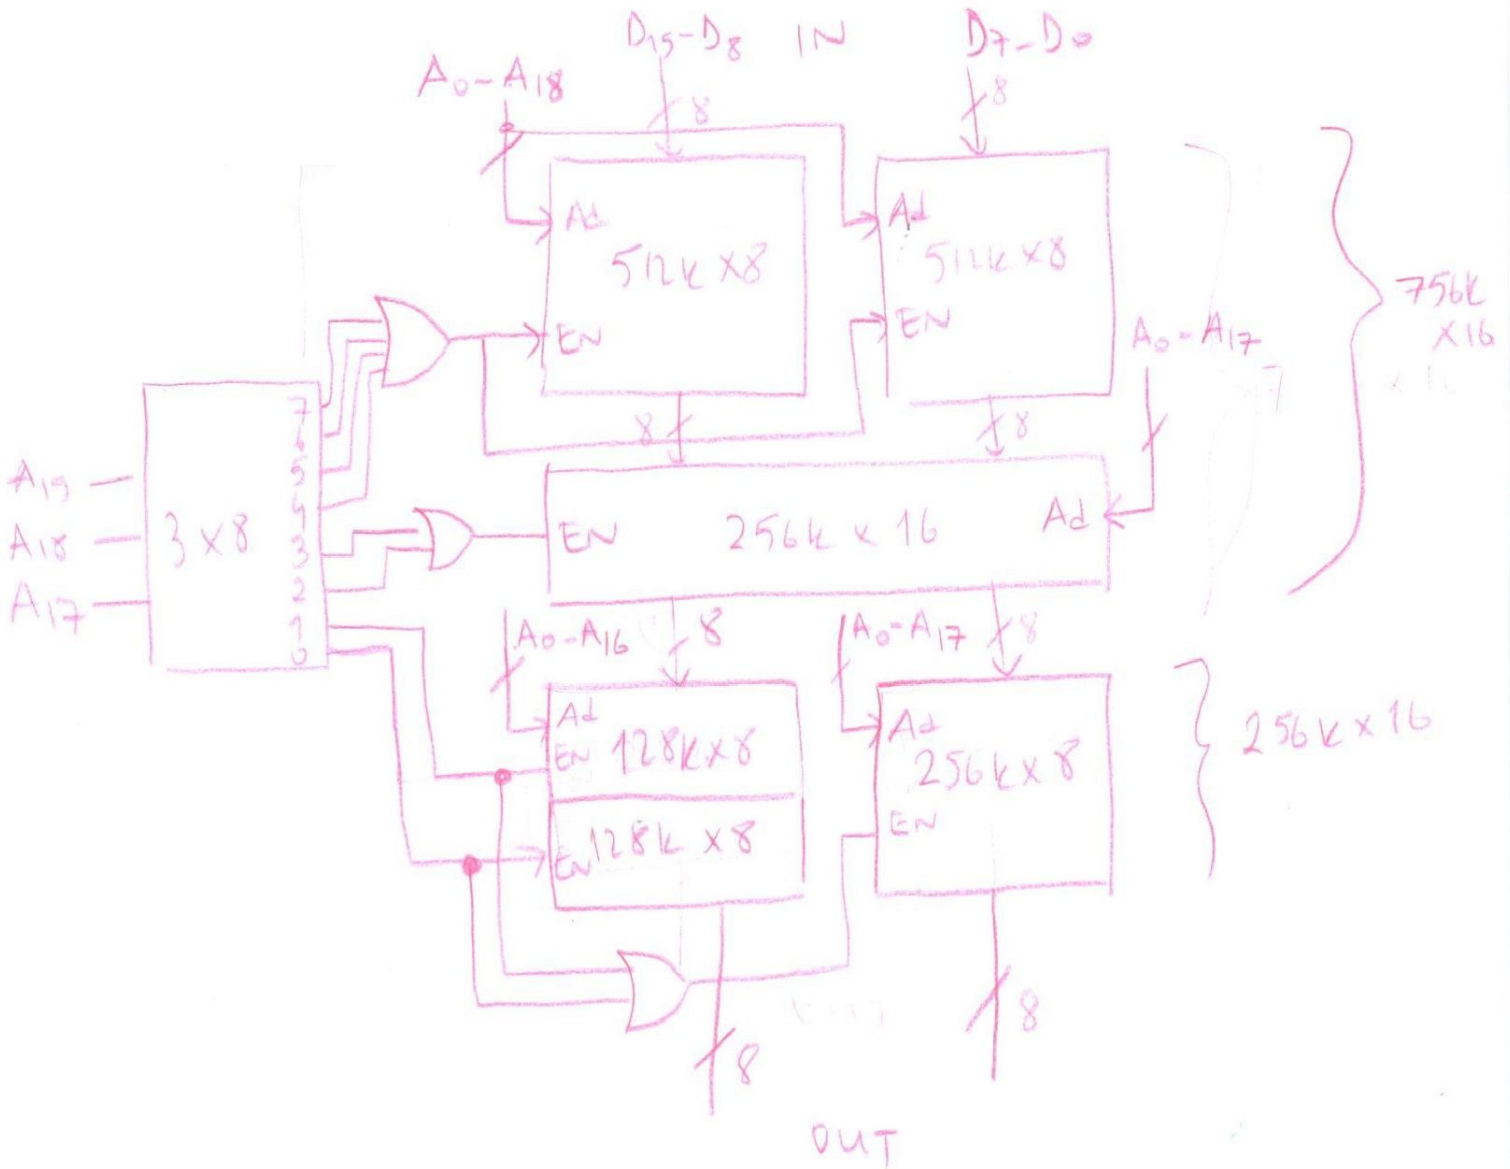 D15-D8 IN D7-D0
A0-A18
8
8
Ad
512k x8
EN
Ad
512k x8
EN
A0-A17
756k
x16
8
8
A19
A18
A17
3 x8
7
6
5
4
3
2
1
0
EN
256k x 16
Ad
A0-A16
8
A0-A17
8
Ad
EN
128k x8
EN
128k x8
Ad
256k x8
EN
256k x 16
8
8
OUT